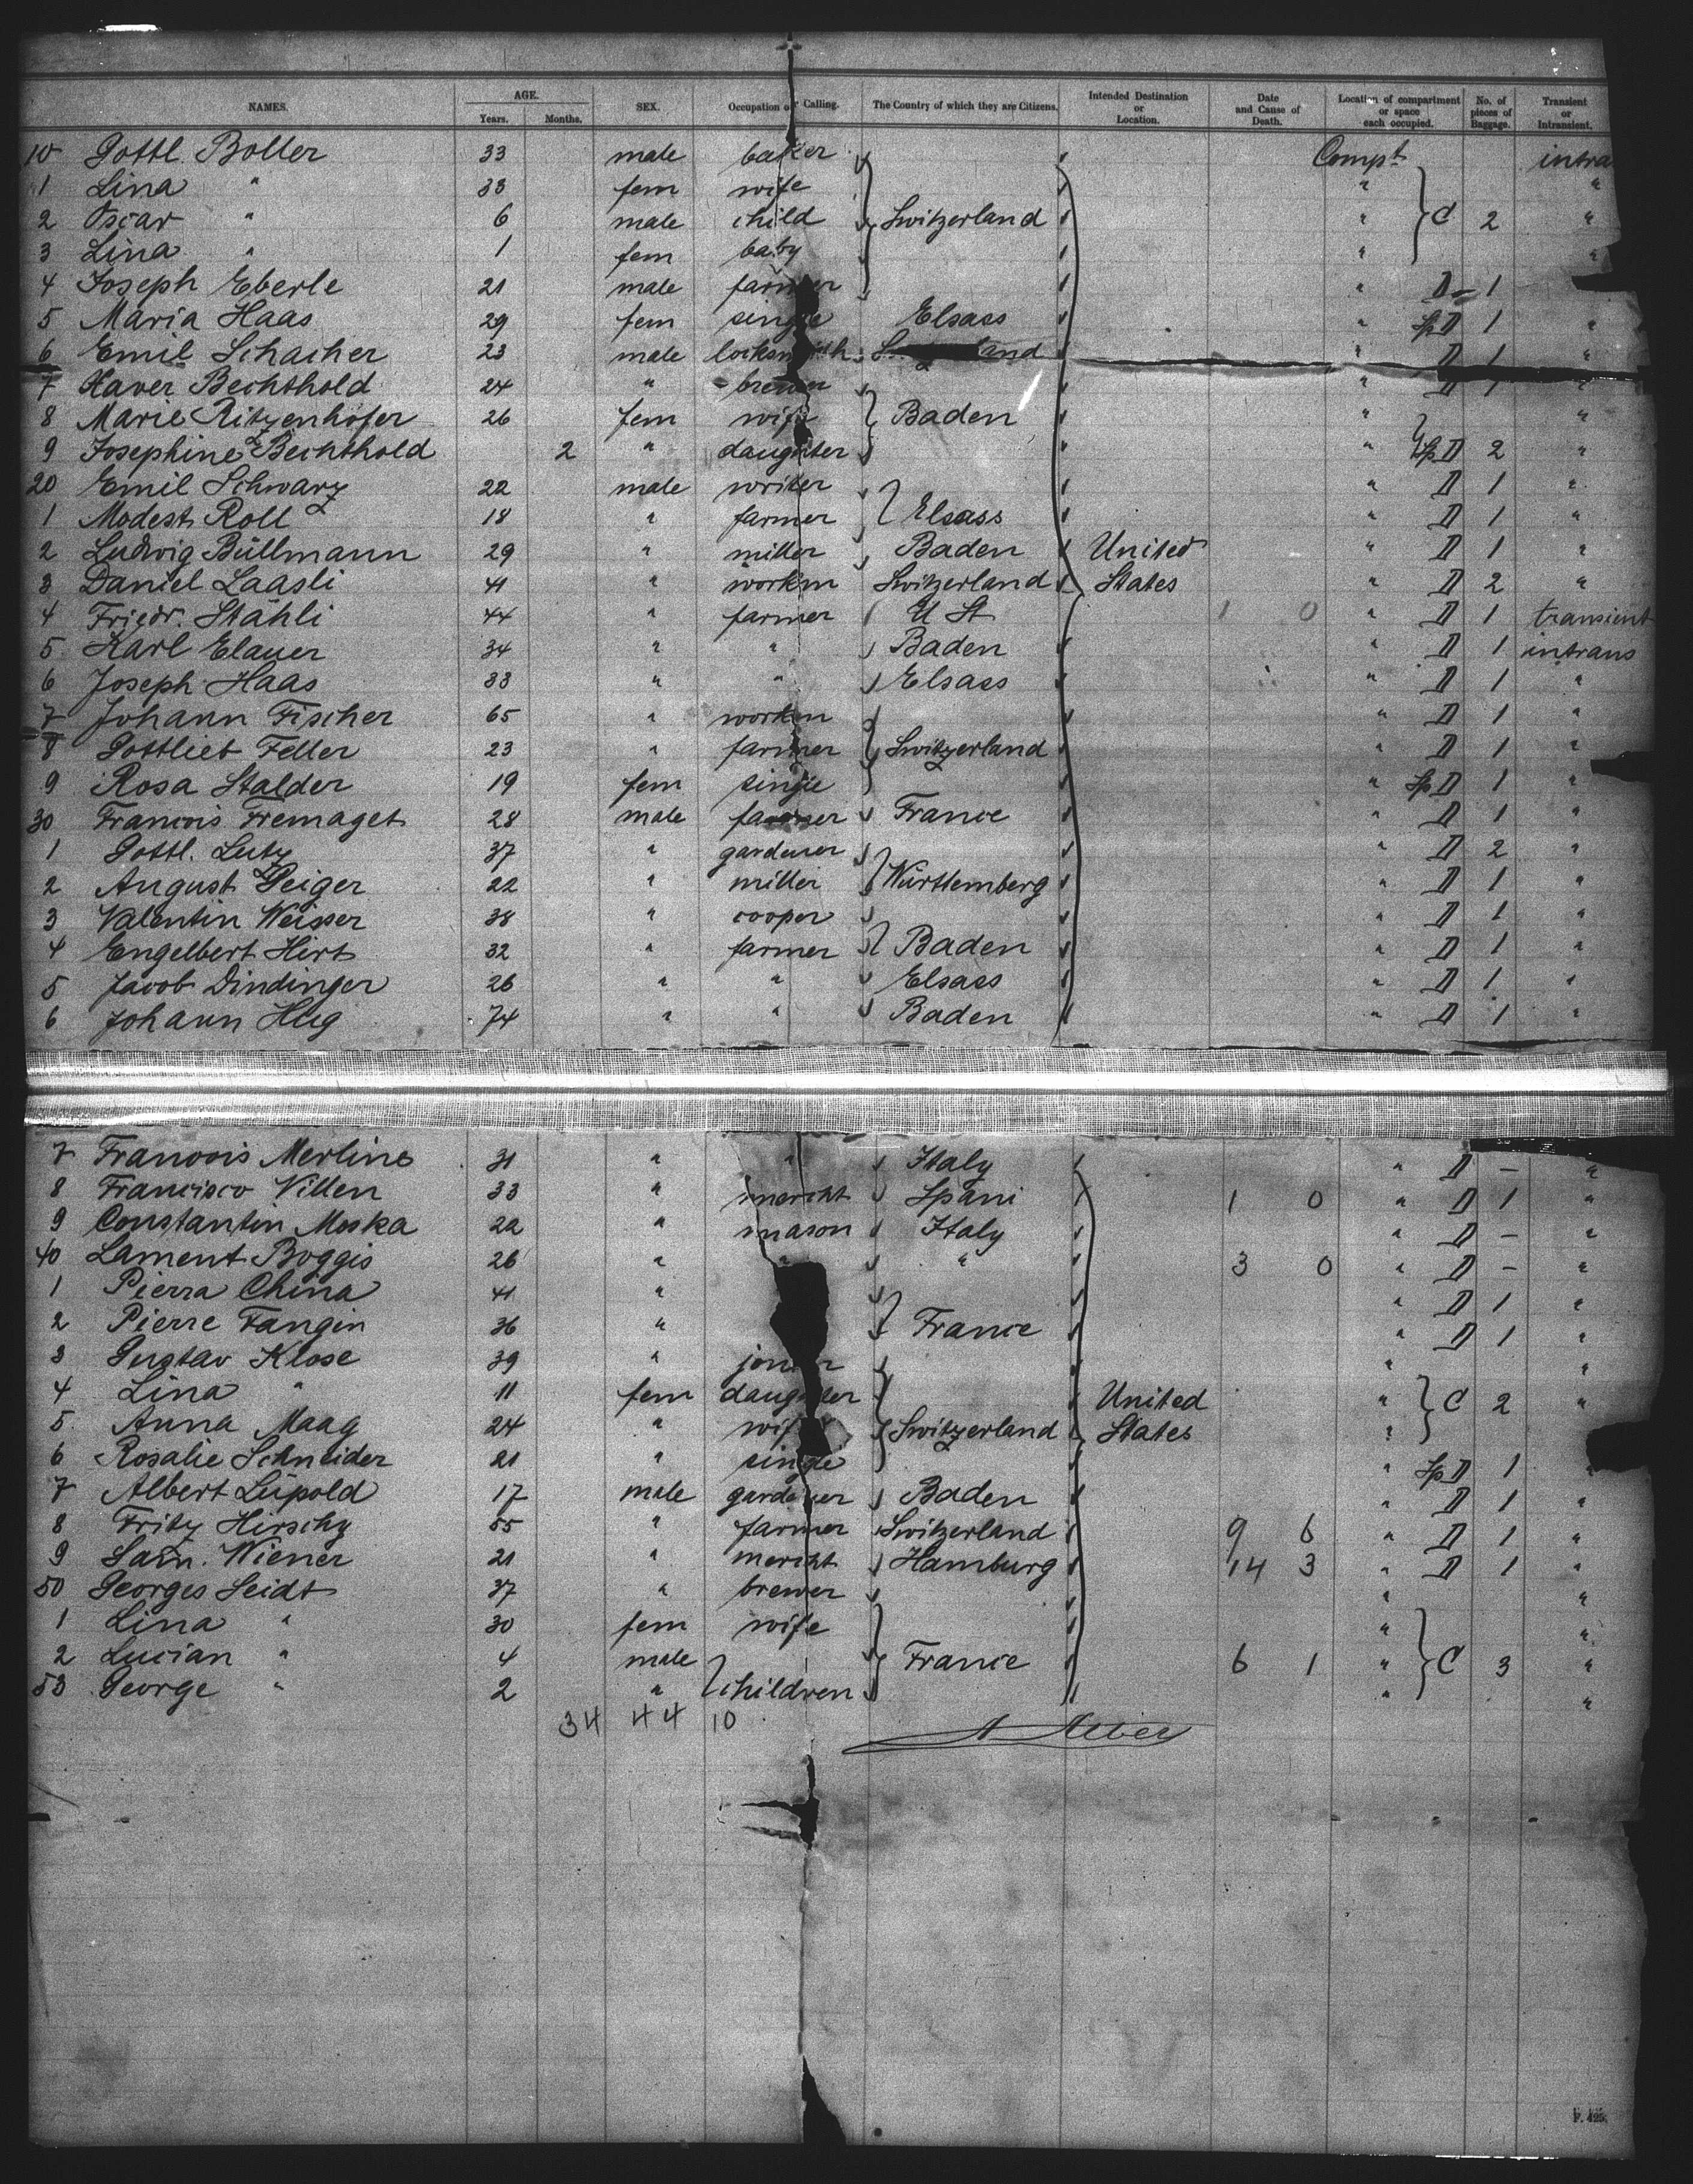 NAMES. AGE. Years. Months. SEX. Occupation or Calling. The Country of which they are Citizens. Intended Destination or Location. Date and Cause of Death. Location of compartment or space each occupied. No. of pieces of Baggage. Transient or Intransient.
10 Gottl. Boller 33 male baker Compt intra
1 Lina " 33 fem wife " "
2 Oscar " 6 male child Switzerland " C 2 "
3 Lina " 1 fem baby " "
4 Joseph Eberle 21 male farmer " D - 1
5 Maria Haas 29 fem single Elsass " Sp D 1 "
6 Emil Schacher 23 male locksmith " D 1 "
7 Xaver Bechthold 24 " brewer " D 1 "
8 Marie Ritzenhofer 26 fem wife Baden " "
9 Josephine Bechthold 2 " daughter " Sp D 2 "
20 Emil Schwarz 22 male writer " D 1 "
1 Modest Roll 18 " farmer Elsass " D 1 "
2 Ludwig Büllmann 29 " miller Baden United " D 1 "
3 Daniel Laasli 41 " workm Switzerland States " D 2 "
4 Friedr. Stähli 44 " farmer U St 1 0 " D 1 transient
5 Karl Elauer 34 " " Baden " D 1 intrans
6 Joseph Haas 33 " " Elsass " D 1 "
7 Johann Fischer 65 " workm " D 1 "
8 Gottlieb Feller 23 " farmer Switzerland " D 1 "
9 Rosa Stalder 19 fem single " Sp D 1 "
30 Francois Fremaget 28 male farmer France " D 1 "
1 Gottl. Lutz 37 " gardener " D 2 "
2 August Geiger 22 " miller Württemberg " D 1 "
3 Valentin Weisser 38 " cooper " D 1 "
4 Engelbert Hirt 32 " farmer Baden " D 1 "
5 Jacob Dindinger 26 " " Elsass " D 1 "
6 Johann Hug 74 " " Baden " D 1 "
7 Francois Merlino 31 " " Italy " D - "
8 Francisco Villen 33 " mercht Spani 1 0 " D 1 "
9 Constantin Moska 22 " mason Italy " D - "
40 Lament Boggis 26 " " " 3 0 " D - "
1 Pierra China 41 " " D 1 "
2 Pierre Fangin 36 " France " D 1 "
3 Gustav Klose 39 " " "
4 Lina " 11 fem daughter United " C 2 "
5 Anna Maag 24 " wife Switzerland States "
6 Rosalie Schneider 21 " single " Sp D 1 "
7 Albert Lüpold 17 male gardener Baden " D 1 "
8 Fritz Hirschy 55 " farmer Switzerland 9 6 " D 1 "
9 Sam. Wiener 21 " mercht Hamburg 14 3 " D 1 "
50 Georges Seidt 37 " brewer " "
1 Lina " 30 fem wife " "
2 Lucian " 4 male France 6 1 " C 3 "
53 George " 2 " children " "
34 44 10